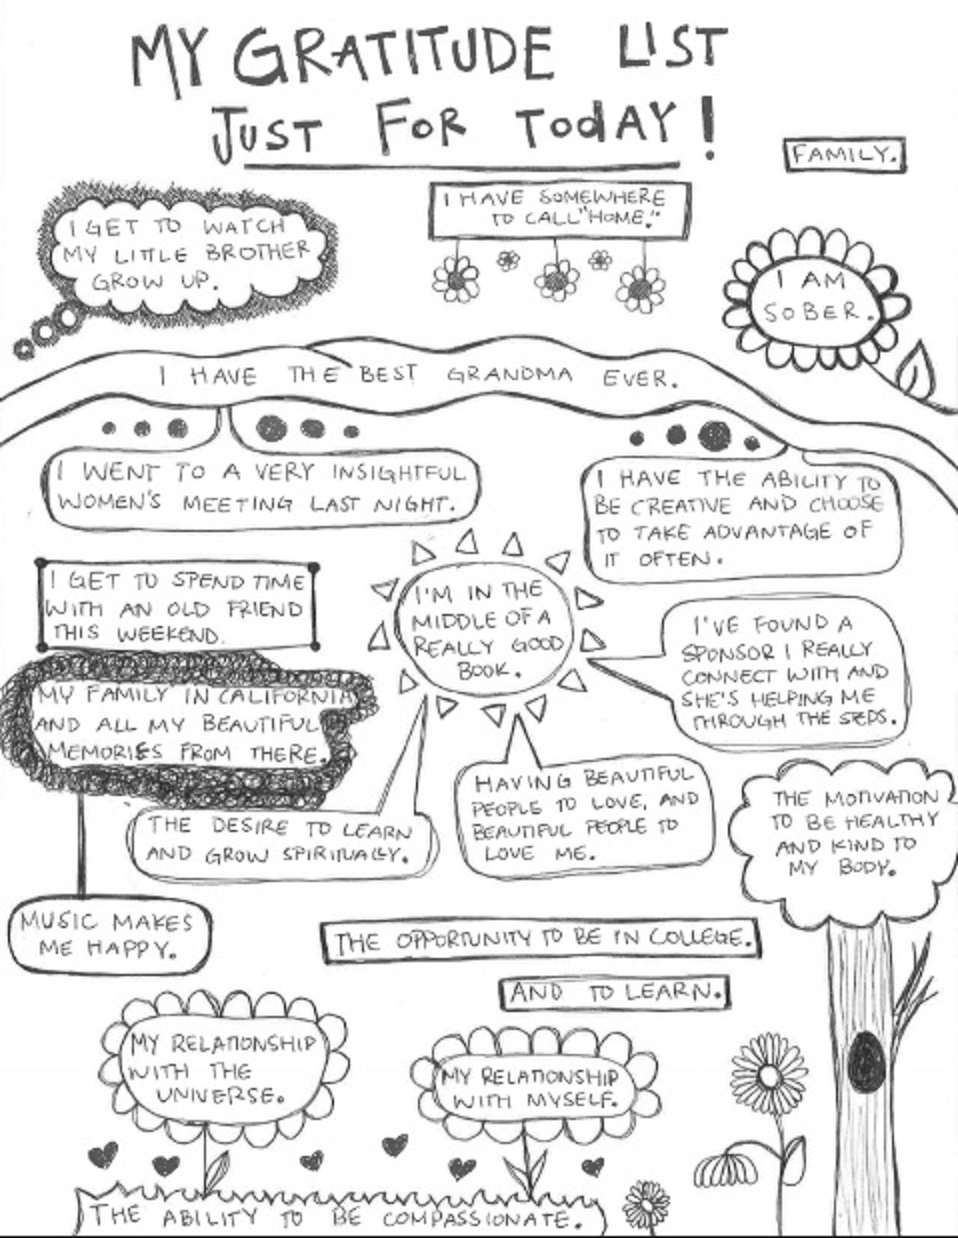 MY GRATITUDE LIST
JUST FOR TODAY!
FAMILY.
I GET TO WATCH
MY LITTLE BROTHER
GROW UP.
I HAVE SOMEWHERE
TO CALL "HOME."
I AM
SOBER.
I HAVE THE BEST GRANDMA EVER.
I WENT TO A VERY INSIGHTFUL
WOMEN'S MEETING LAST NIGHT.
I HAVE THE ABILITY TO
BE CREATIVE AND CHOOSE
TO TAKE ADVANTAGE OF
IT OFTEN.
I GET TO SPEND TIME
WITH AN OLD FRIEND
THIS WEEKEND.
I'M IN THE
MIDDLE OF A
REALLY GOOD
BOOK.
I'VE FOUND A
SPONSOR I REALLY
CONNECT WITH AND
SHE'S HELPING ME
THROUGH THE STEPS.
MY FAMILY IN CALIFORNIA
AND ALL MY BEAUTIFUL
MEMORIES FROM THERE.
THE DESIRE TO LEARN
AND GROW SPIRITUALLY.
HAVING BEAUTIFUL
PEOPLE TO LOVE, AND
BEAUTIFUL PEOPLE TO
LOVE ME.
THE MOTIVATION
TO BE HEALTHY
AND KIND TO
MY BODY.
MUSIC MAKES
ME HAPPY.
THE OPPORTUNITY TO BE IN COLLEGE.
AND TO LEARN.
MY RELATIONSHIP
WITH THE
UNIVERSE.
MY RELATIONSHIP
WITH MYSELF.
THE ABILITY TO BE COMPASSIONATE.